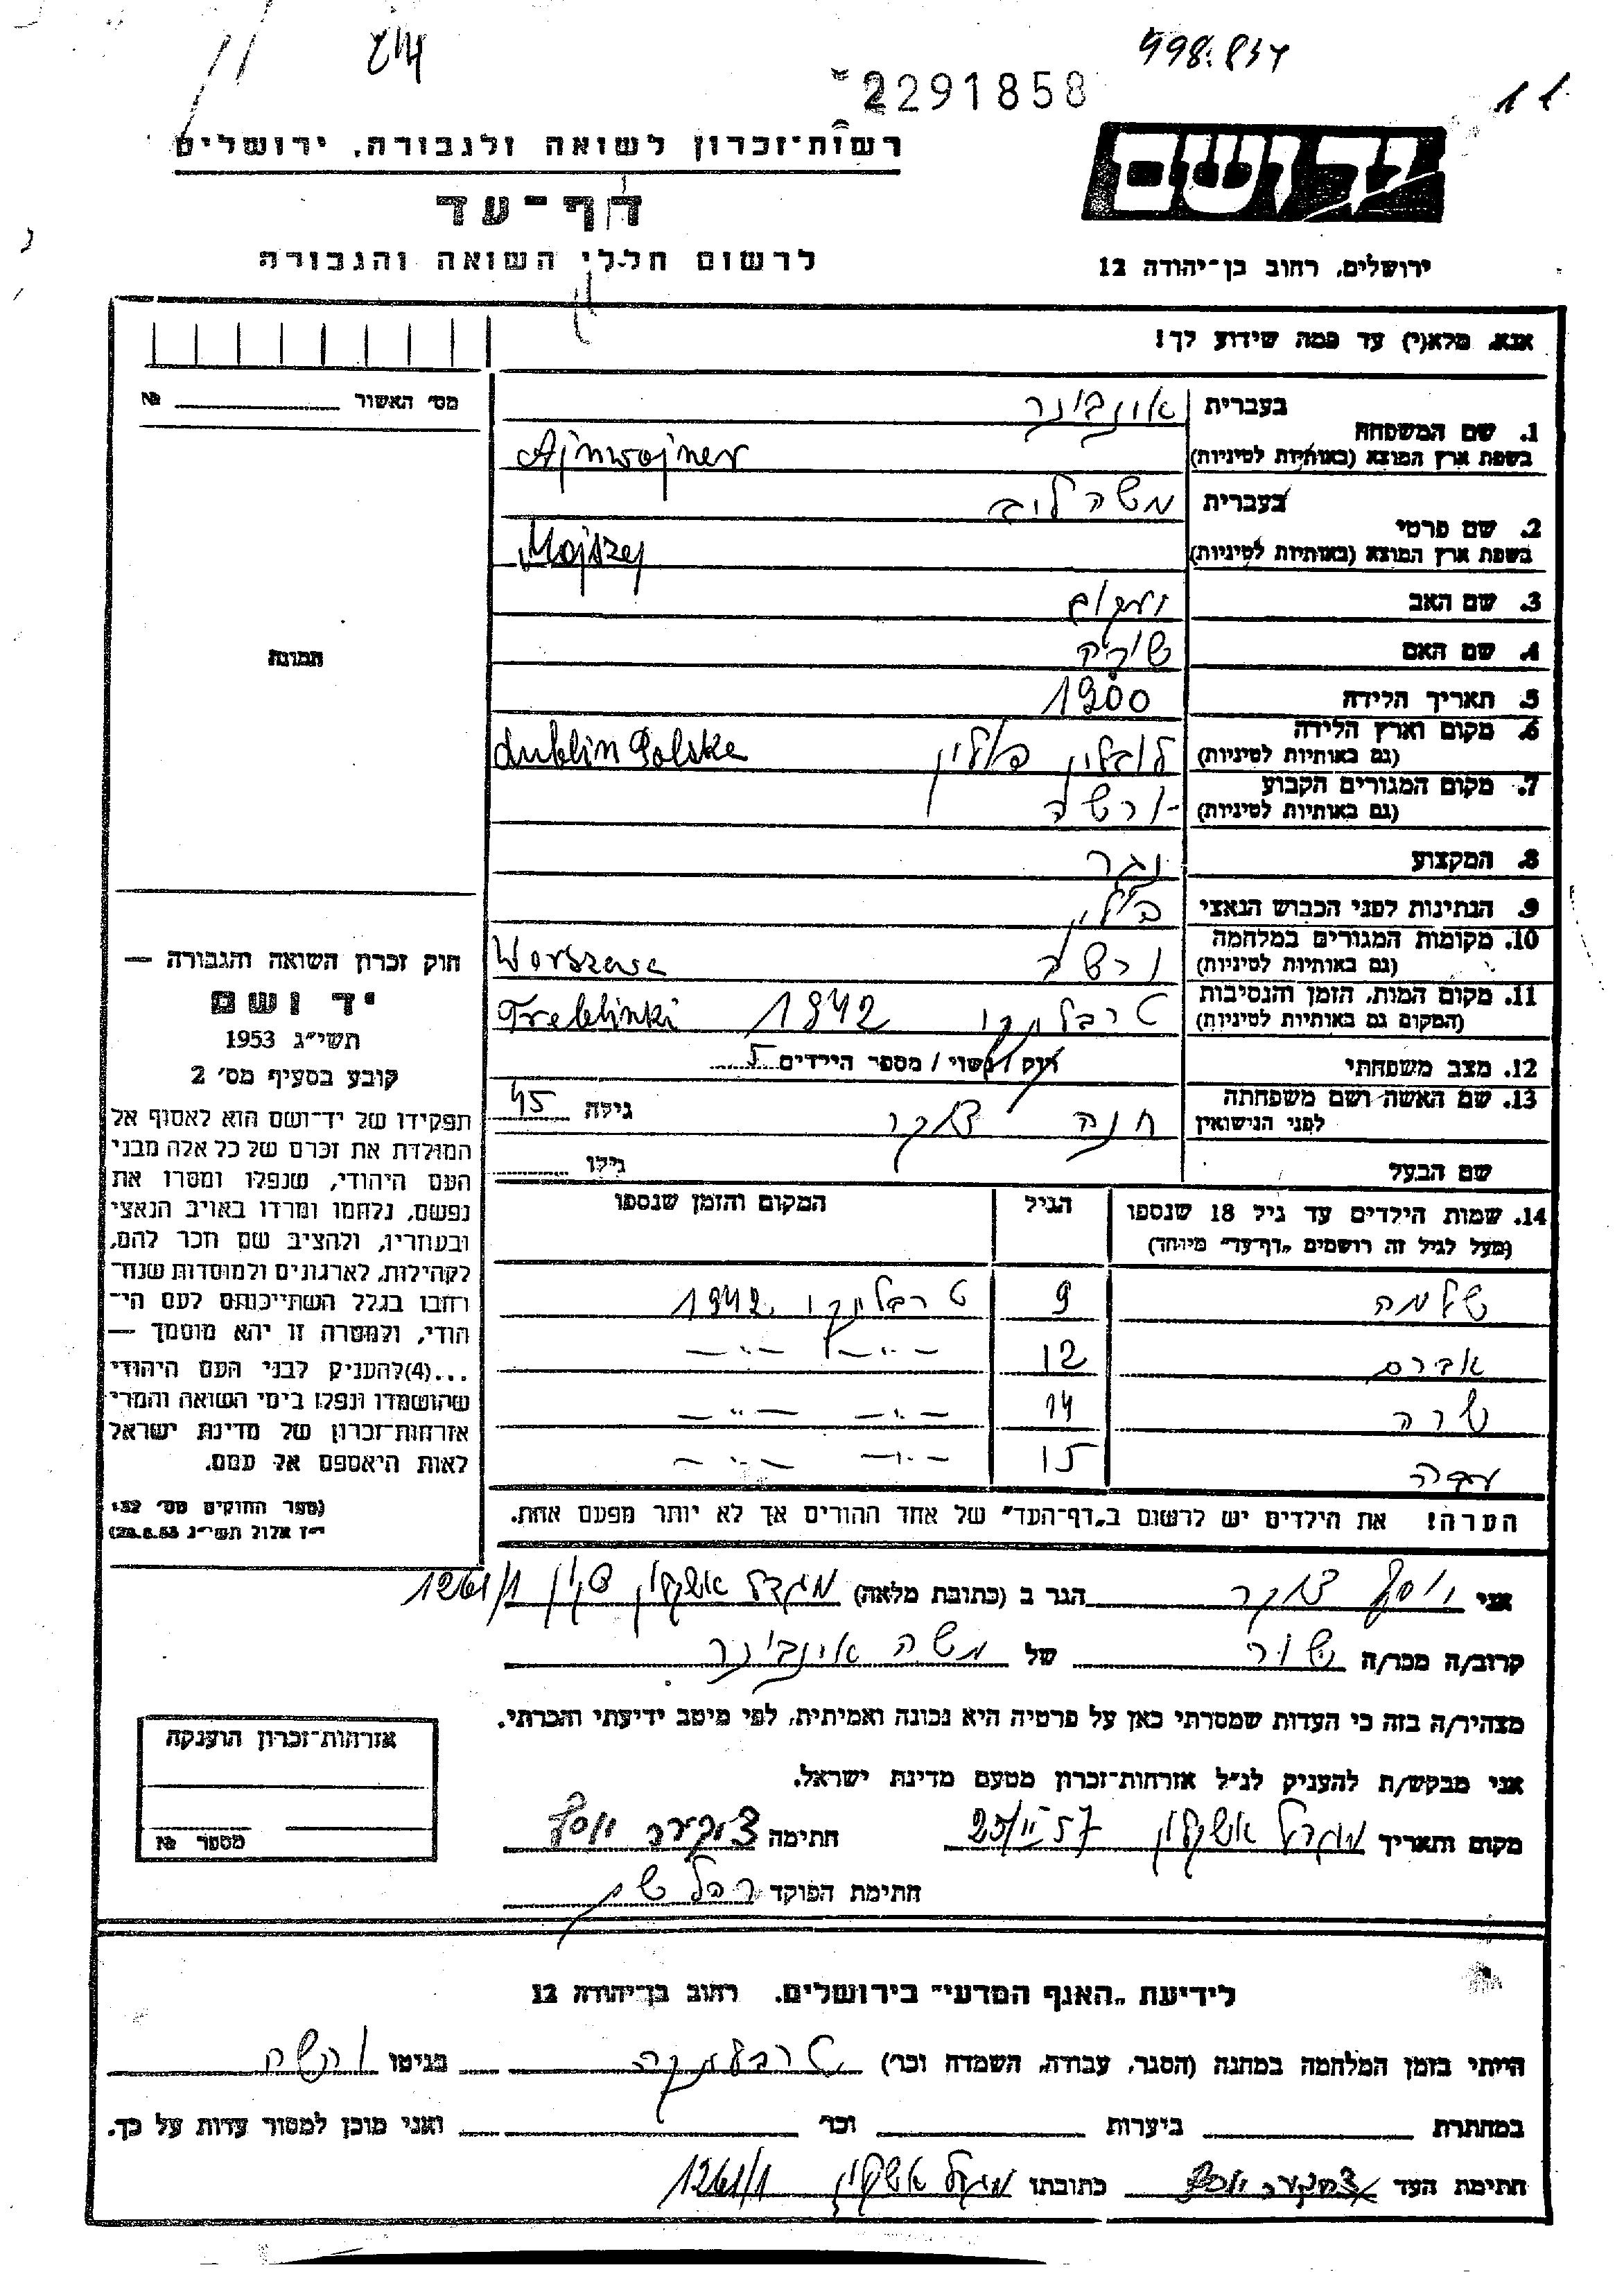 2291858
רשות־זכרון לשואה ולגבורה, ירושלים
יד ושם
דף־עד
לרשום חללי השואה והגבורה
ירושלים, רחוב בן־יהודה 12
אנא, מלא(י) עד כמה שידוע לך!
מס׳ האשור №
1. שם המשפחה
בעברית אינבינר
בשפת ארץ המוצא (באותיות לטיניות) Ajnwajner
2. שם פרטי
בעברית משה ליב
בשפת ארץ המוצא (באותיות לטיניות) Mojszej
3. שם האב
4. שם האם
5. תאריך הלידה 1900
6. מקום וארץ הלידה (גם באותיות לטיניות) לובלין פולין Lublin Polska
7. מקום המגורים הקבוע (גם באותיות לטיניות) ורשה
8. המקצוע נגר
9. הנתינות לפני הכבוש הנאצי פולין
10. מקומות המגורים במלחמה (גם באותיות לטיניות) ורשה Worszawa
11. מקום המות, הזמן והנסיבות (המקום גם באותיות לטיניות) טרבלינקי 1942 Treblinki
12. מצב משפחתי רוק / נשוי / מספר הילדים 5
13. שם האשה ושם משפחתה לפני הנישואין חנה צוקר גילה 45
שם הבעל גילו
14. שמות הילדים עד גיל 18 שנספו (מעל לגיל זה רושמים „דף־עד״ מיוחד) הגיל המקום והזמן שנספו
שלמה 9 טרבלינקי 1942
אברם 12 — ״ — — ״ —
שרה 14 — ״ — — ״ —
15 — ״ — — ״ —
הערה! את הילדים יש לרשום ב„דף־העד״ של אחד ההורים אך לא יותר מפעם אחת.
תמונה
חוק זכרון השואה והגבורה —
יד ושם
תשי״ג 1953
קובע בסעיף מס׳ 2
תפקידו של יד־ושם הוא לאסוף אל
המולדת את זכרם של כל אלה מבני
העם היהודי, שנפלו ומסרו את
נפשם, נלחמו ומרדו באויב הנאצי
ובעוזריו, ולהציב שם וזכר להם,
לקהילות, לארגונים ולמוסדות שנח־
רבו בגלל השתייכותם לעם הי־
הודי, ולמטרה זו יהא מוסמך —
...(4) להעניק לבני העם היהודי
שהושמדו ונפלו בימי השואה והמרי
אזרחות־זכרון של מדינת ישראל
לאות היאספם אל עמם.
(ספר החוקים מס׳ 132
י״ז אלול תשי״ג 28.8.53)
אני יוסף צוקר הגר ב (כתובת מלאה) מגדל אשקלון 1261/1
קרוב/ה מכר/ה של משה אינבינר
מצהיר/ה בזה כי העדות שמסרתי כאן על פרטיה היא נכונה ואמיתית, לפי מיטב ידיעתי והכרתי.
אני מבקש/ת להעניק לנ״ל אזרחות־זכרון מטעם מדינת ישראל.
מקום ותאריך מגדל אשקלון 25/II 57 חתימה צוקער יוסף
חתימת הפוקד
אזרחות־זכרון הוענקה
מספר №
לידיעת „האגף המדעי״ בירושלים. רחוב בן־יהודה 12
הייתי בזמן המלחמה במחנה (הסגר, עבודה, השמדה וכר׳) טרבלינקה בגיטו ורשה
במחתרת ביערות וכר׳ ואני מוכן למסור עדות על כך.
חתימת העד צוקער יוסף כתובתו מגדל אשקלון 1261/1